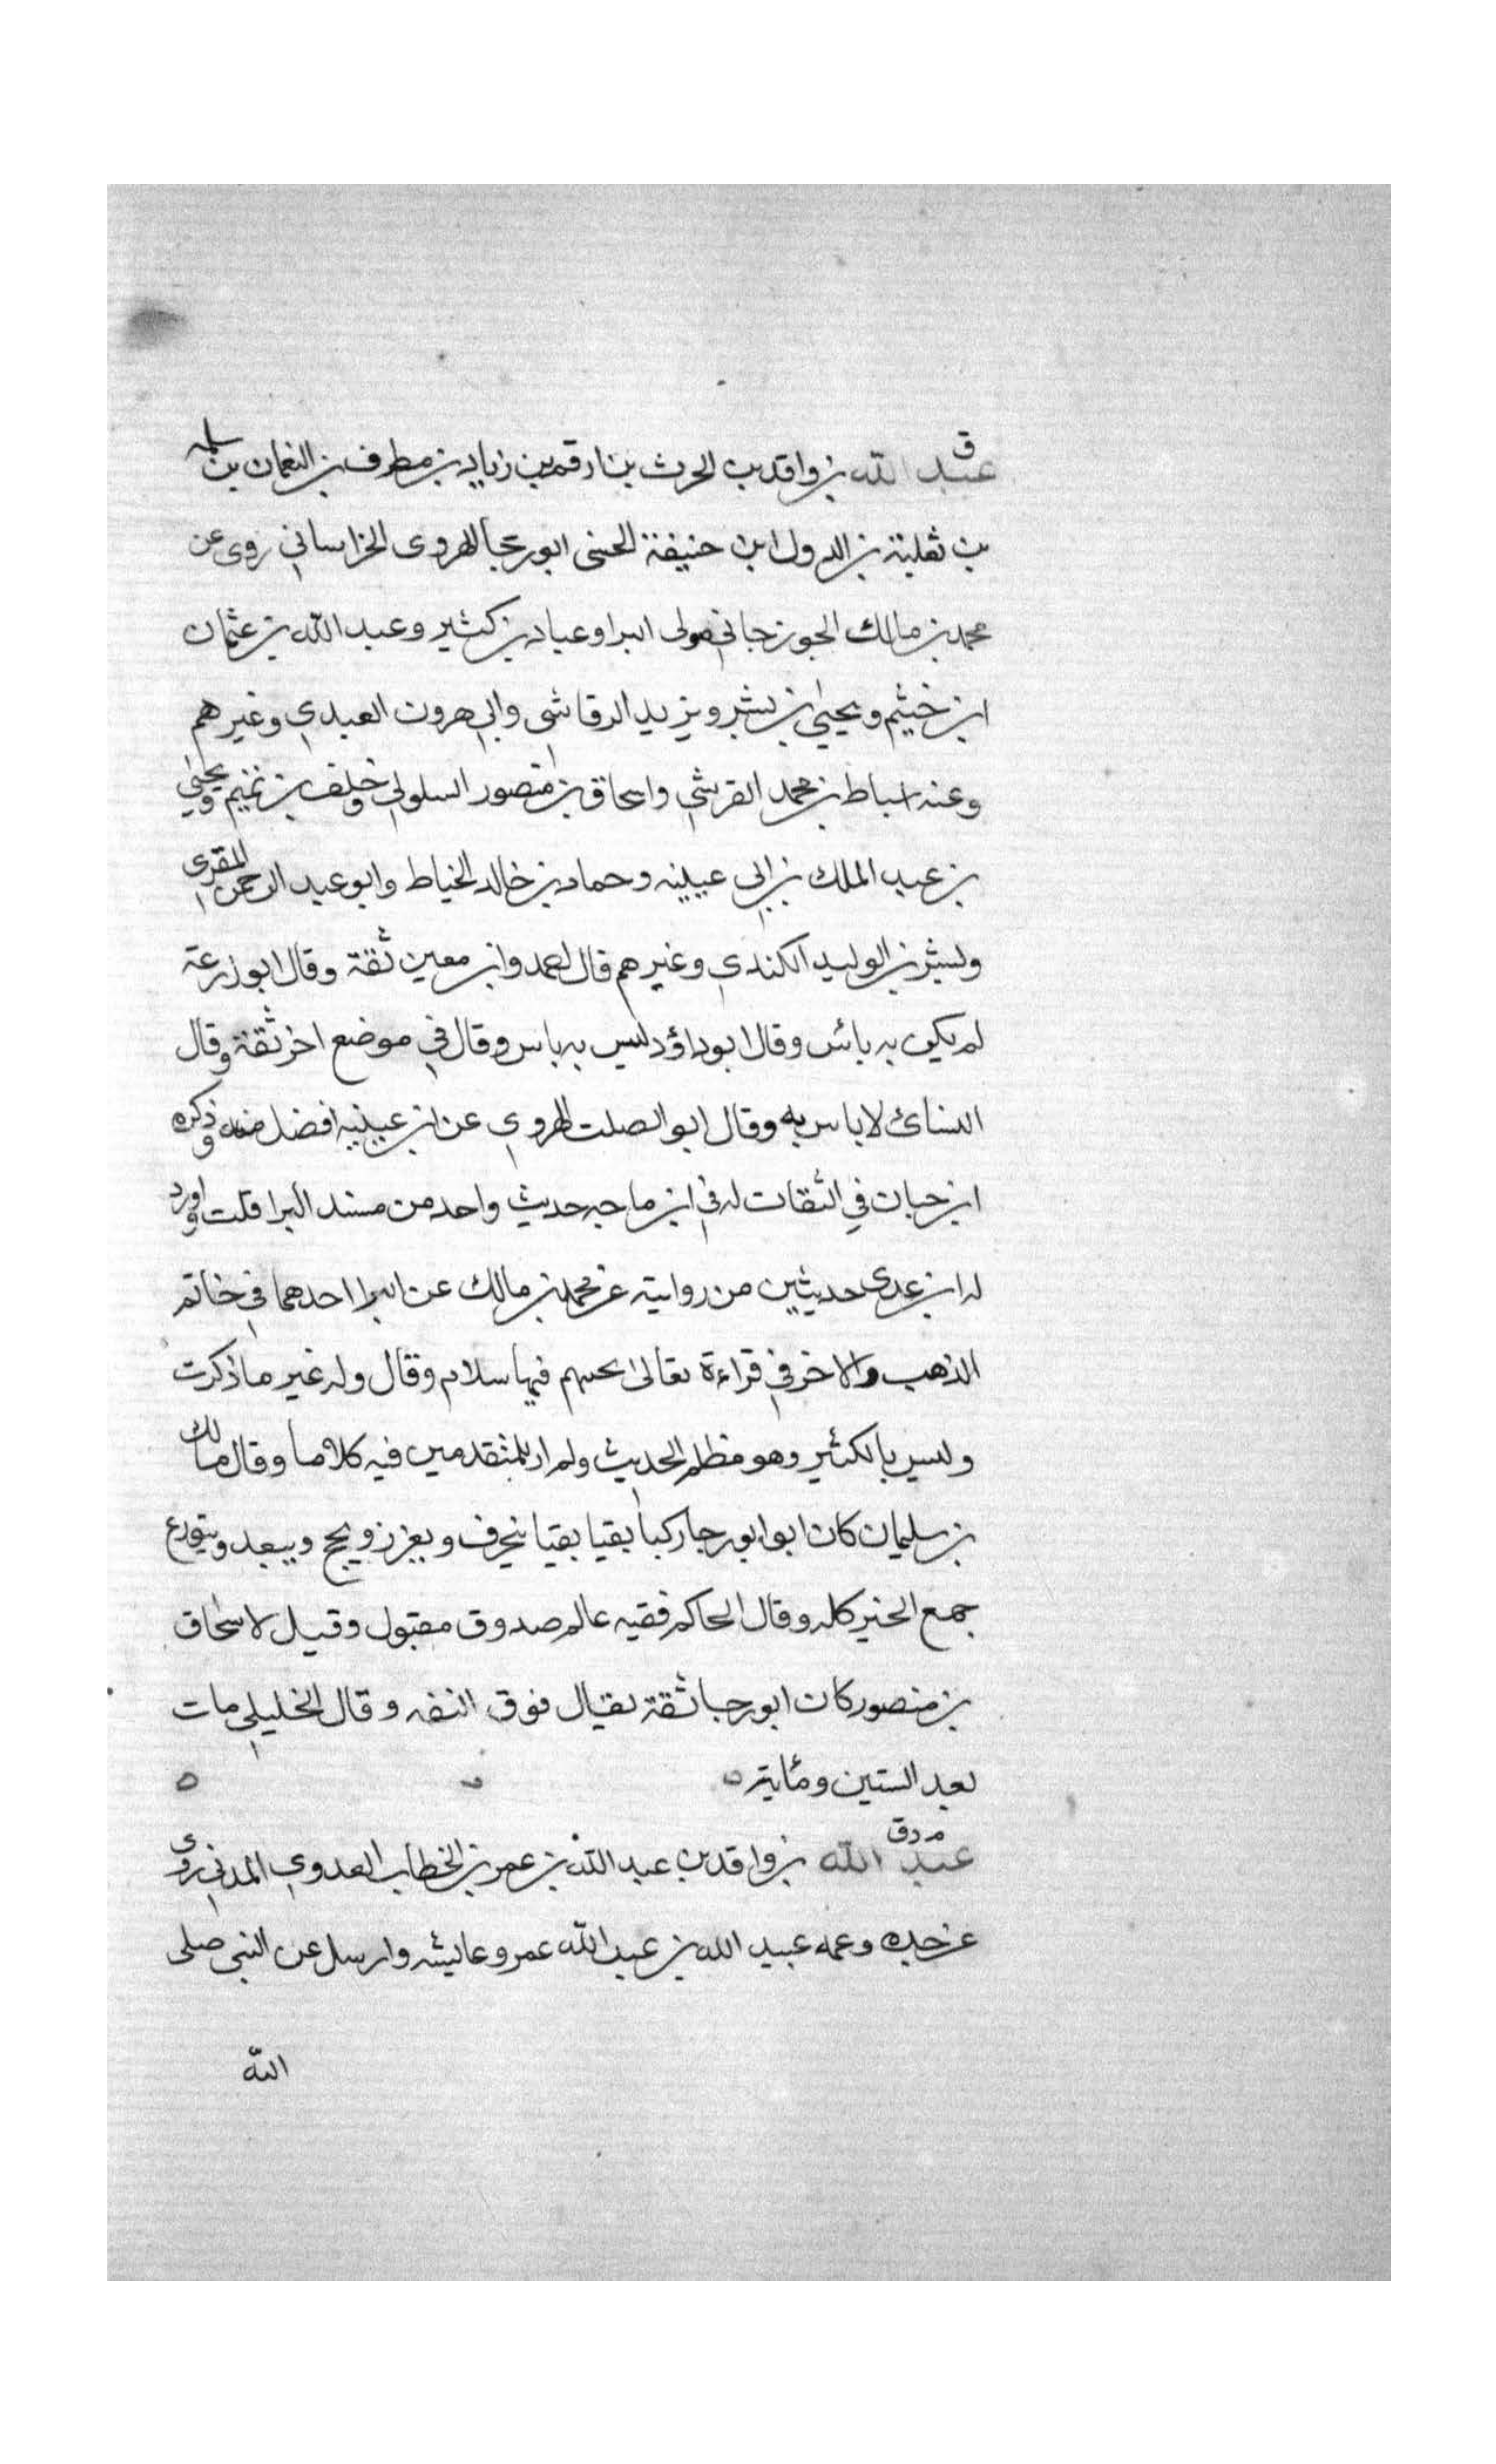 ق
عبد الله بن واقد بن الحرث بن ارقم بن زياد بن مطرف بن النعمان بن سلمه
بن ثعلبة بن الدول ابن حنيفة الحنفى ابو رجا الهروى الخراساني روى عن
محمد بن مالك الجوزجاني مولى البرا وعباد بن كثير وعبد الله بن عثمان
ابن خيثم ويحيى بن بشر ويزيد الرقاشى وابي هرون العبدي وغيرهم
وعنه اسباط بن محمد القرشي واسحاق بن منصور السلولي وخلف بن تميم ويحيى
بن عبد الملك بن ابى عيينه وحماد بن خالد الخياط وابو عبد الرحمن المقرى
وبشر بن الوليد الكندي وغيرهم قال احمد وابن معين ثقة وقال ابو زرعة
لم يكن به بائس وقال ابو داؤد ليس به باس وقال في موضع اخر ثقة وقال
النسائ لا باس به وقال ابو الصلت الهروي عن ابن عيينه افضل منه وذكره
ابن حبان في الثقات له في ابن ماجه حديث واحد من مسند البرا قلت واورد
له ابن عدى حديثين من رواية عن محمد بن مالك عن البرا احدهما في خاتم
الذهب والاخر في قراءة تعالى فيها سلام وقال وله غير ما ذكرت
وليس بالكثير وهو مظلم الحديث ولم ار للمتقدمين فيه كلاما وقال مالك
بن سليمان كان ابو ابو رجا بقيا بقيا ويحج ويتورع
جمع الخير كله وقال الحاكم فقيه عالم صدوق مقبول وقيل لاسحاق
بن منصور كان ابو رجا ثقة فقال فوق الثقه وقال الخليلي مات
بعد الستين ومائة ه ه
م د ق
عبد الله بن واقد بن عبد الله بن عمر بن الخطاب العدوي المدني روى
عن جده وعمه عبيد الله بن عبد الله عمر وعايشه وارسل عن النبى صلى
الله